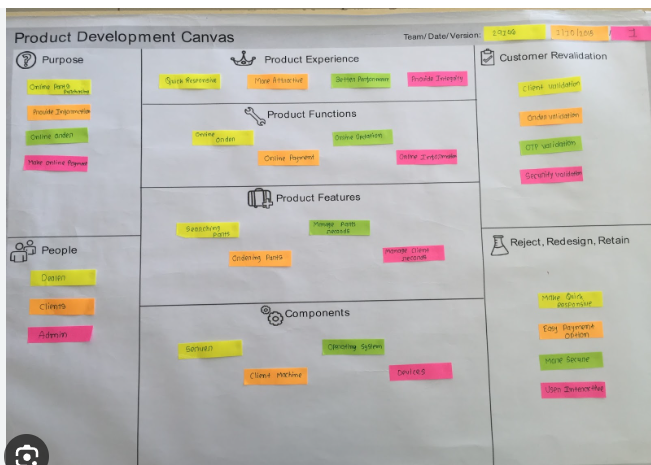 Product Development Canvas
Team/Date/Version:
1
Purpose
Online Parts
Purchasing
Provide Information
Online order
Make online Payment
People
Dealer
Clients
Admin
Product Experience
Quick Response
More Attractive
Better Performance
Provide Integrity
Product Functions
Online
order
Online Payment
Online Quotation
Online Information
Product Features
Searching
Parts
Ordering Parts
Manage Parts
records
Manage Client
records
Components
Server
Client Machine
Operating System
Devices
Customer Revalidation
Client validation
Order validation
OTP validation
Security validation
Reject, Redesign, Retain
More Quick
Responsible
Easy Payment
Option
More Secure
User Interactive